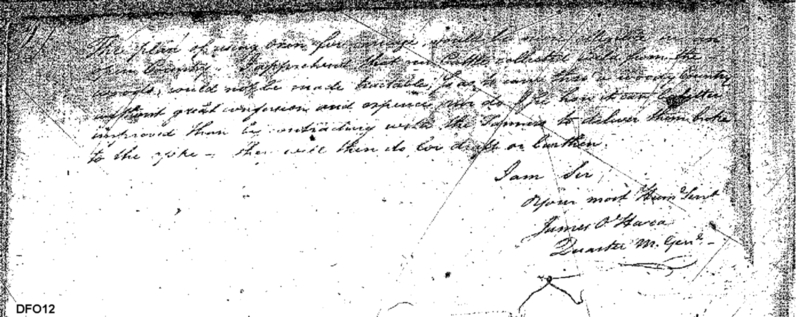 The plan of using oxen for
open Country. I apprehend that our Cattle collected wild from the
woods, could not be made tractable, so as to this a woody Country
without great confusion and expence, nor do I see how it can be better
improved than by contracting with the Farmers to deliver them broke
to the yoke — they will then do for draft or burthen.
I am Sir
Your most Hum. Servt
James O'Hara
Quarter M. Genl.
DFO12